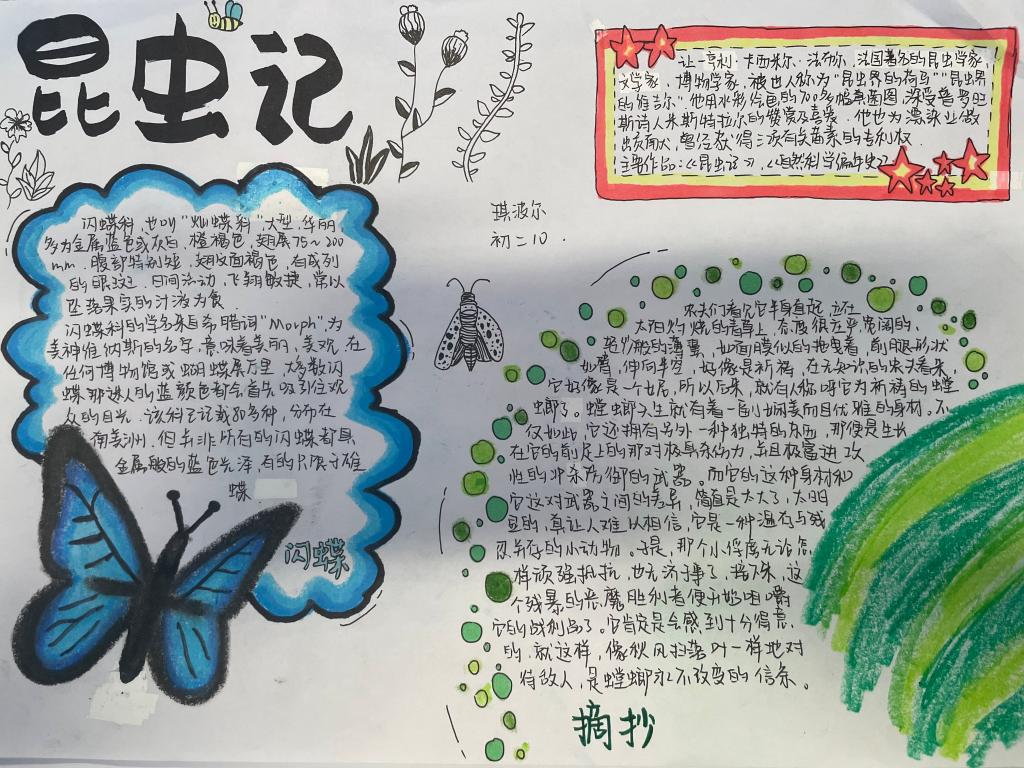 昆虫记
让一亨利·卡西米尔·法布尔,法国著名的昆虫学家,
文学家,博物学家,被世人称为"昆虫界的荷马""昆虫界
的维吉尔"他用水彩绘画的700多幅真菌图,深受普罗旺
斯诗人米斯特拉尔的赞赏及喜爱。他也为漂染业做
出贡献,曾经获得三项有关茜素的专利权
主要作品:《昆虫记》,《自然科学编年史》
琪波尔
初二10.
闪蝶科,也叫"灿蝶科",大型,华丽,
多为金属蓝色或灰白、橙褐色,翅展75~200
mm.腹部特别短,翅反面褐色,有成列
的眼斑.日间活动,飞翔敏捷,常以
坠落果实的汁液为食
闪蝶科的学名来自希腊词"Morph",为
美神维纳斯的名字,意味着美丽,美观,在
任何博物馆或蝴蝶展厅里,大多数闪
蝶那迷人的蓝颜色都会首先吸引住观
众的目光.该科已记载80多种,分布在
南美洲.但并非所有的闪蝶都具
金属般的蓝色光泽,有的只限于雄
蝶
闪蝶
农夫们看见它半身直起,立在
太阳灼烧的青草上,态度很庄严宽阔的,
轻纱般的薄翼,如面膜似的拖曳着,前腿形状
如臂,伸向半空,好像是祈祷,在无知识的农夫看来,
它好像是一个尼,所以后来,就有人称呼它为祈祷的螳
螂了。螳螂天生就有着一副娴美而且优雅的身材.不
仅如此,它还拥有另外一种独特的东西,那便是生长
在它的前足上的那对极具杀伤力,并且极富进攻
性的冲杀防御的武器。而它的这种身材和
它这对武器之间的差异,简直是太大了,太明
显的,真让人难以相信,它是一种温存与残
忍并存的小动物.于是,那个小俘虏无论怎
样顽强抵抗,也无济于事了,接下来,这
个残暴的恶魔胜利者便开始咀嚼
它的战利品了。它肯定是会感到十分得意
的.就这样,像秋风扫落叶一样地对
待敌人,是螳螂永不改变的信条。
摘抄